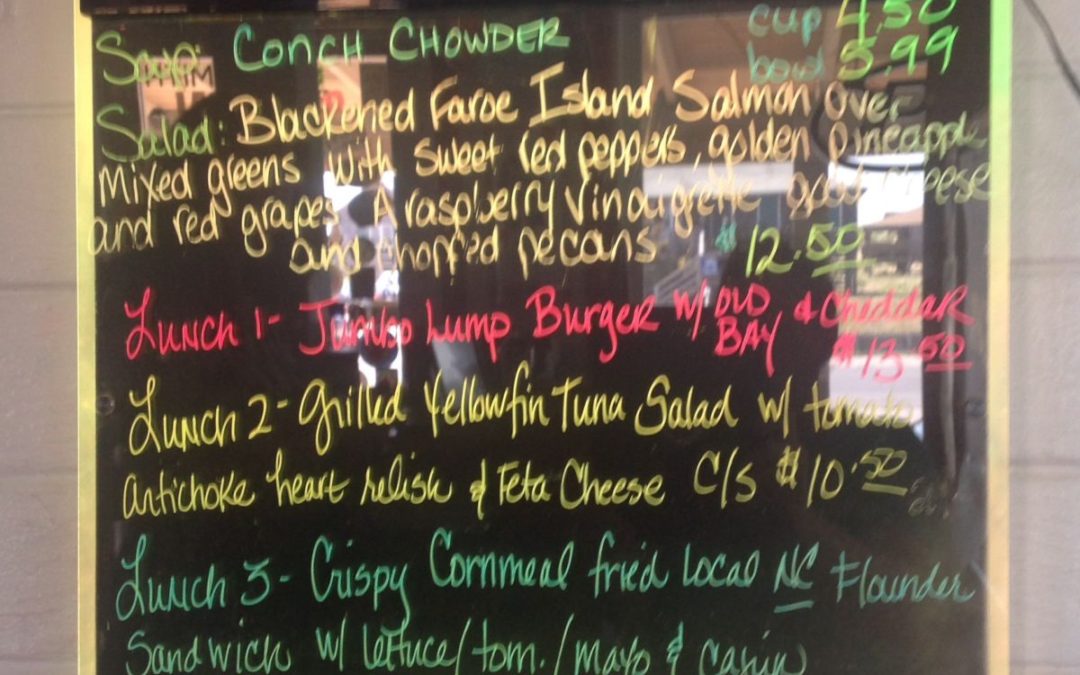 Soup: CONCH CHOWDER cup 4.50
bowl 5.99
Salad: Blackened Faroe Island Salmon over
mixed greens with sweet red peppers, golden pineapple
and red grapes. A raspberry vinaigrette goat cheese
and chopped pecans $12.50
Lunch 1- Jumbo Lump Burger w/ OLD BAY & Cheddar
$13.50
Lunch 2- Grilled Yellowfin Tuna Salad w/ tomato
artichoke heart relish & Feta Cheese C/S $10.50
Lunch 3- Crispy Cornmeal fried local NC Flounder
Sandwich w/ lettuce/tom./mayo &